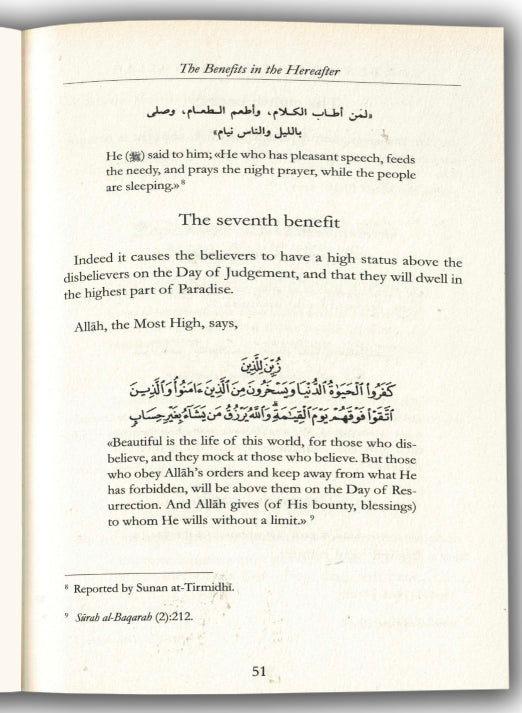 The Benefits in the Hereafter
«لمَن أطاب الكـلام، وأطعم الـطعـام، وصلى
بالليل والناس نيام»
He (ﷺ) said to him; «He who has pleasant speech, feeds
the needy, and prays the night prayer, while the people
are sleeping.» 8
The seventh benefit
Indeed it causes the believers to have a high status above the
disbelievers on the Day of Judgement, and that they will dwell in
the highest part of Paradise.
Allāh, the Most High, says,
زُيِّنَ لِلَّذِينَ
كَفَرُوا۟ ٱلْحَيَوٰةُ ٱلدُّنْيَا وَيَسْخَرُونَ مِنَ ٱلَّذِينَ ءَامَنُوا۟ وَٱلَّذِينَ
ٱتَّقَوْا۟ فَوْقَهُمْ يَوْمَ ٱلْقِيَـٰمَةِ ۗ وَٱللَّهُ يَرْزُقُ مَن يَشَآءُ بِغَيْرِ حِسَابٍ
«Beautiful is the life of this world, for those who dis-
believe, and they mock at those who believe. But those
who obey Allāh's orders and keep away from what He
has forbidden, will be above them on the Day of Res-
urrection. And Allāh gives (of His bounty, blessings)
to whom He wills without a limit.» 9
8 Reported by Sunan at-Tirmidhī.
9 Sūrah al-Baqarah (2):212.
51